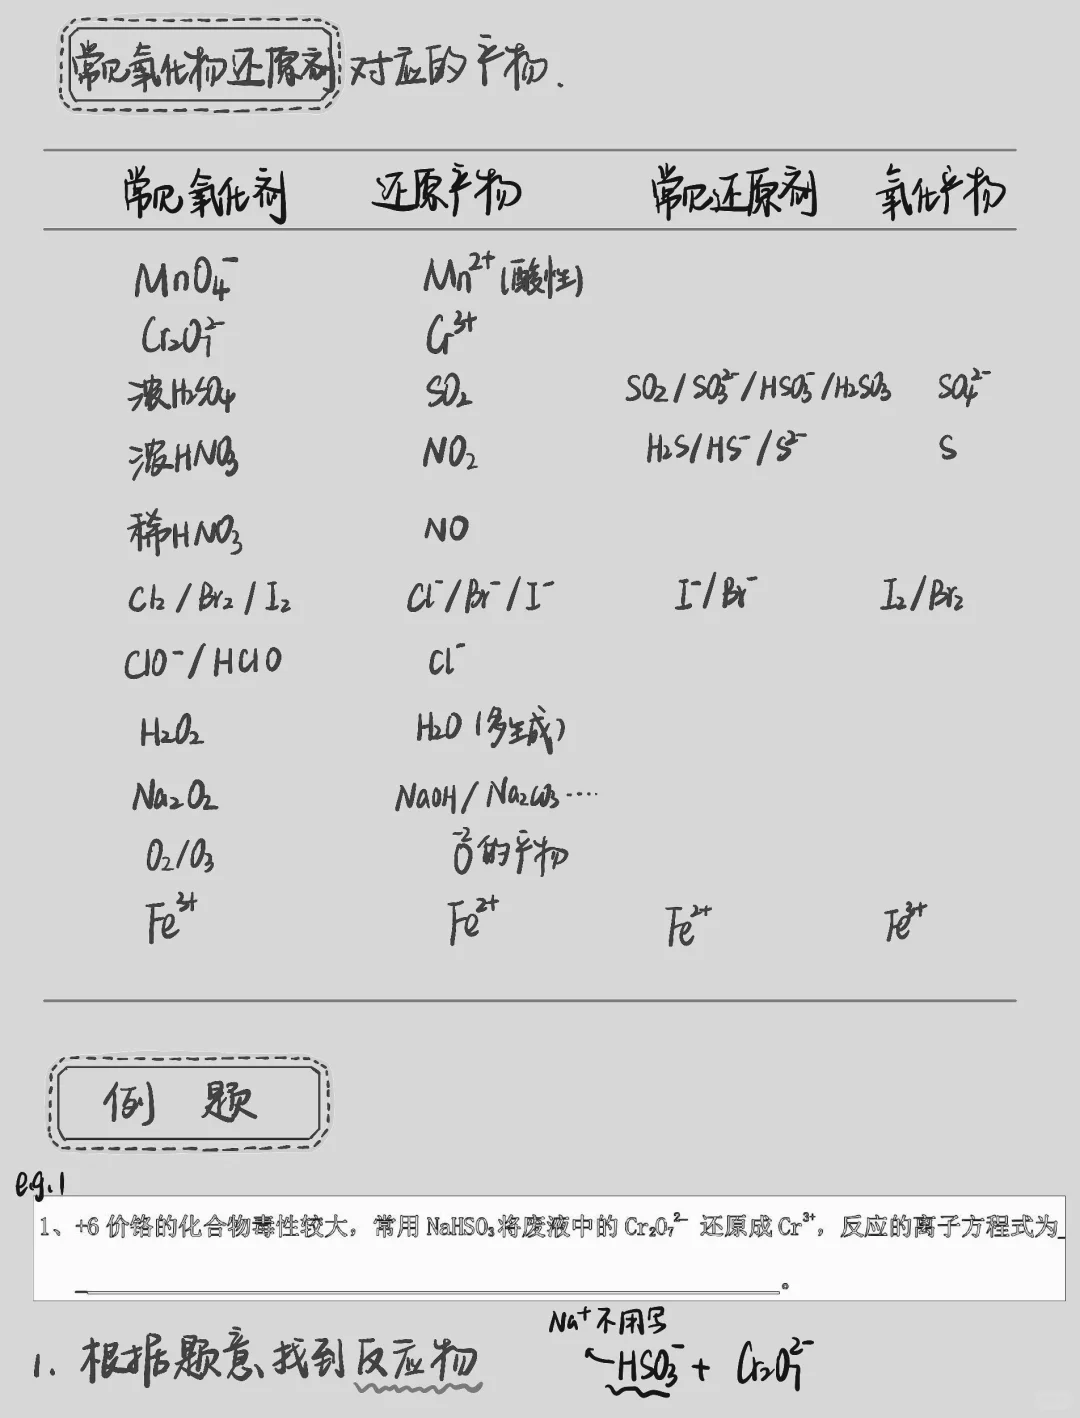 常见氧化物还原剂对应的产物.
常见氧化剂 还原产物 常见还原剂 氧化产物
MnO₄⁻ Mn²⁺(酸性)
Cr₂O₇²⁻ Cr³⁺
浓H₂SO₄ SO₂ SO₂/SO₃²⁻/HSO₃⁻/H₂SO₃ SO₄²⁻
浓HNO₃ NO₂ H₂S/HS⁻/S²⁻ S
稀HNO₃ NO
Cl₂/Br₂/I₂ Cl⁻/Br⁻/I⁻ I⁻/Br⁻ I₂/Br₂
ClO⁻/HClO Cl⁻
H₂O₂ H₂O(多生成)
Na₂O₂ NaOH/Na₂CO₃……
O₂/O₃ -2 O的产物
Fe³⁺ Fe²⁺ Fe²⁺ Fe³⁺
例 题
e.g.1
1、+6 价铬的化合物毒性较大，常用 NaHSO₃将废液中的 Cr₂O₇²⁻ 还原成 Cr³⁺，反应的离子方程式为_
。
Na⁺不用写
1. 根据题意、找到反应物 HSO₃⁻ + Cr₂O₇²⁻